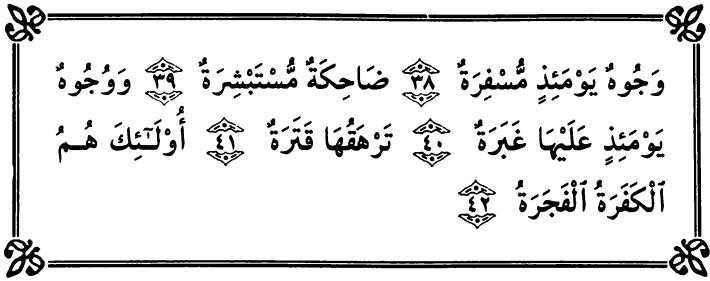 وُجُوهٌ يَوْمَئِذٍ مُّسْفِرَةٌ ٣٨ ضَاحِكَةٌ مُّسْتَبْشِرَةٌ ٣٩ وَوُجُوهٌ
يَوْمَئِذٍ عَلَيْهَا غَبَرَةٌ ٤٠ تَرْهَقُهَا قَتَرَةٌ ٤١ أُوْلَـٰٓئِكَ هُمُ
ٱلْكَفَرَةُ ٱلْفَجَرَةُ ٤٢